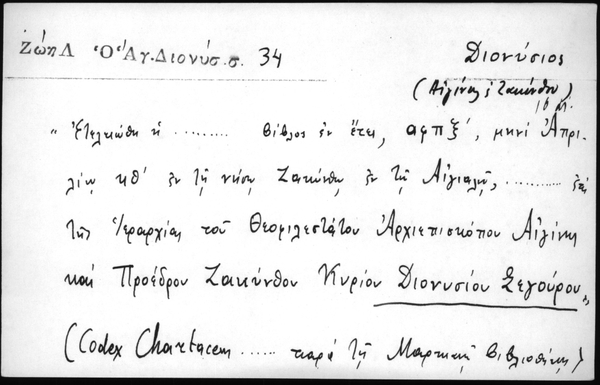 Ζώη Λ Ὁ Ἅγ. Διονύσ. σ. 34
Διονύσιος
(Αἰγίνης & Ζακύνθου)
16 αἰ.
"Ἐτελειώθη ἡ ......... βίβλος ἐν ἔτει, αφπξ', μηνί Ἀπρι-
λίῳ κθ' ἐν τῇ νήσῳ Ζακύνθῳ ἐν τῇ Αἰγιαλῇ, .......... ἐπί
τῆς Ἱεραρχίας τοῦ Θεοφιλεστάτου Ἀρχιεπισκόπου Αἰγίνης
καί Προέδρου Ζακύνθου Κυρίου Διονυσίου Σεγούρου"
(Codex Chartacem ...... παρά τῇ Μαρκιανῇ Βιβλιοθήκῃ)